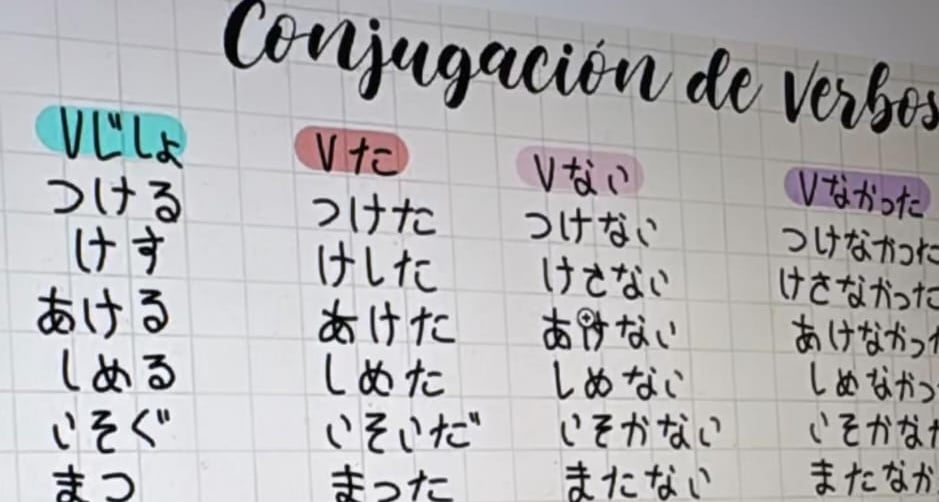 Conjugación de Verbos
Vじしょ Vた Vない Vなかった
つける つけた つけない つけなかった
けす けした けさない けさなかった
あける あけた あけない あけなかった
しめる しめた しめない しめなかっ
いそぐ いそいだ いそかない いそかなか
まつ まった またない またなか